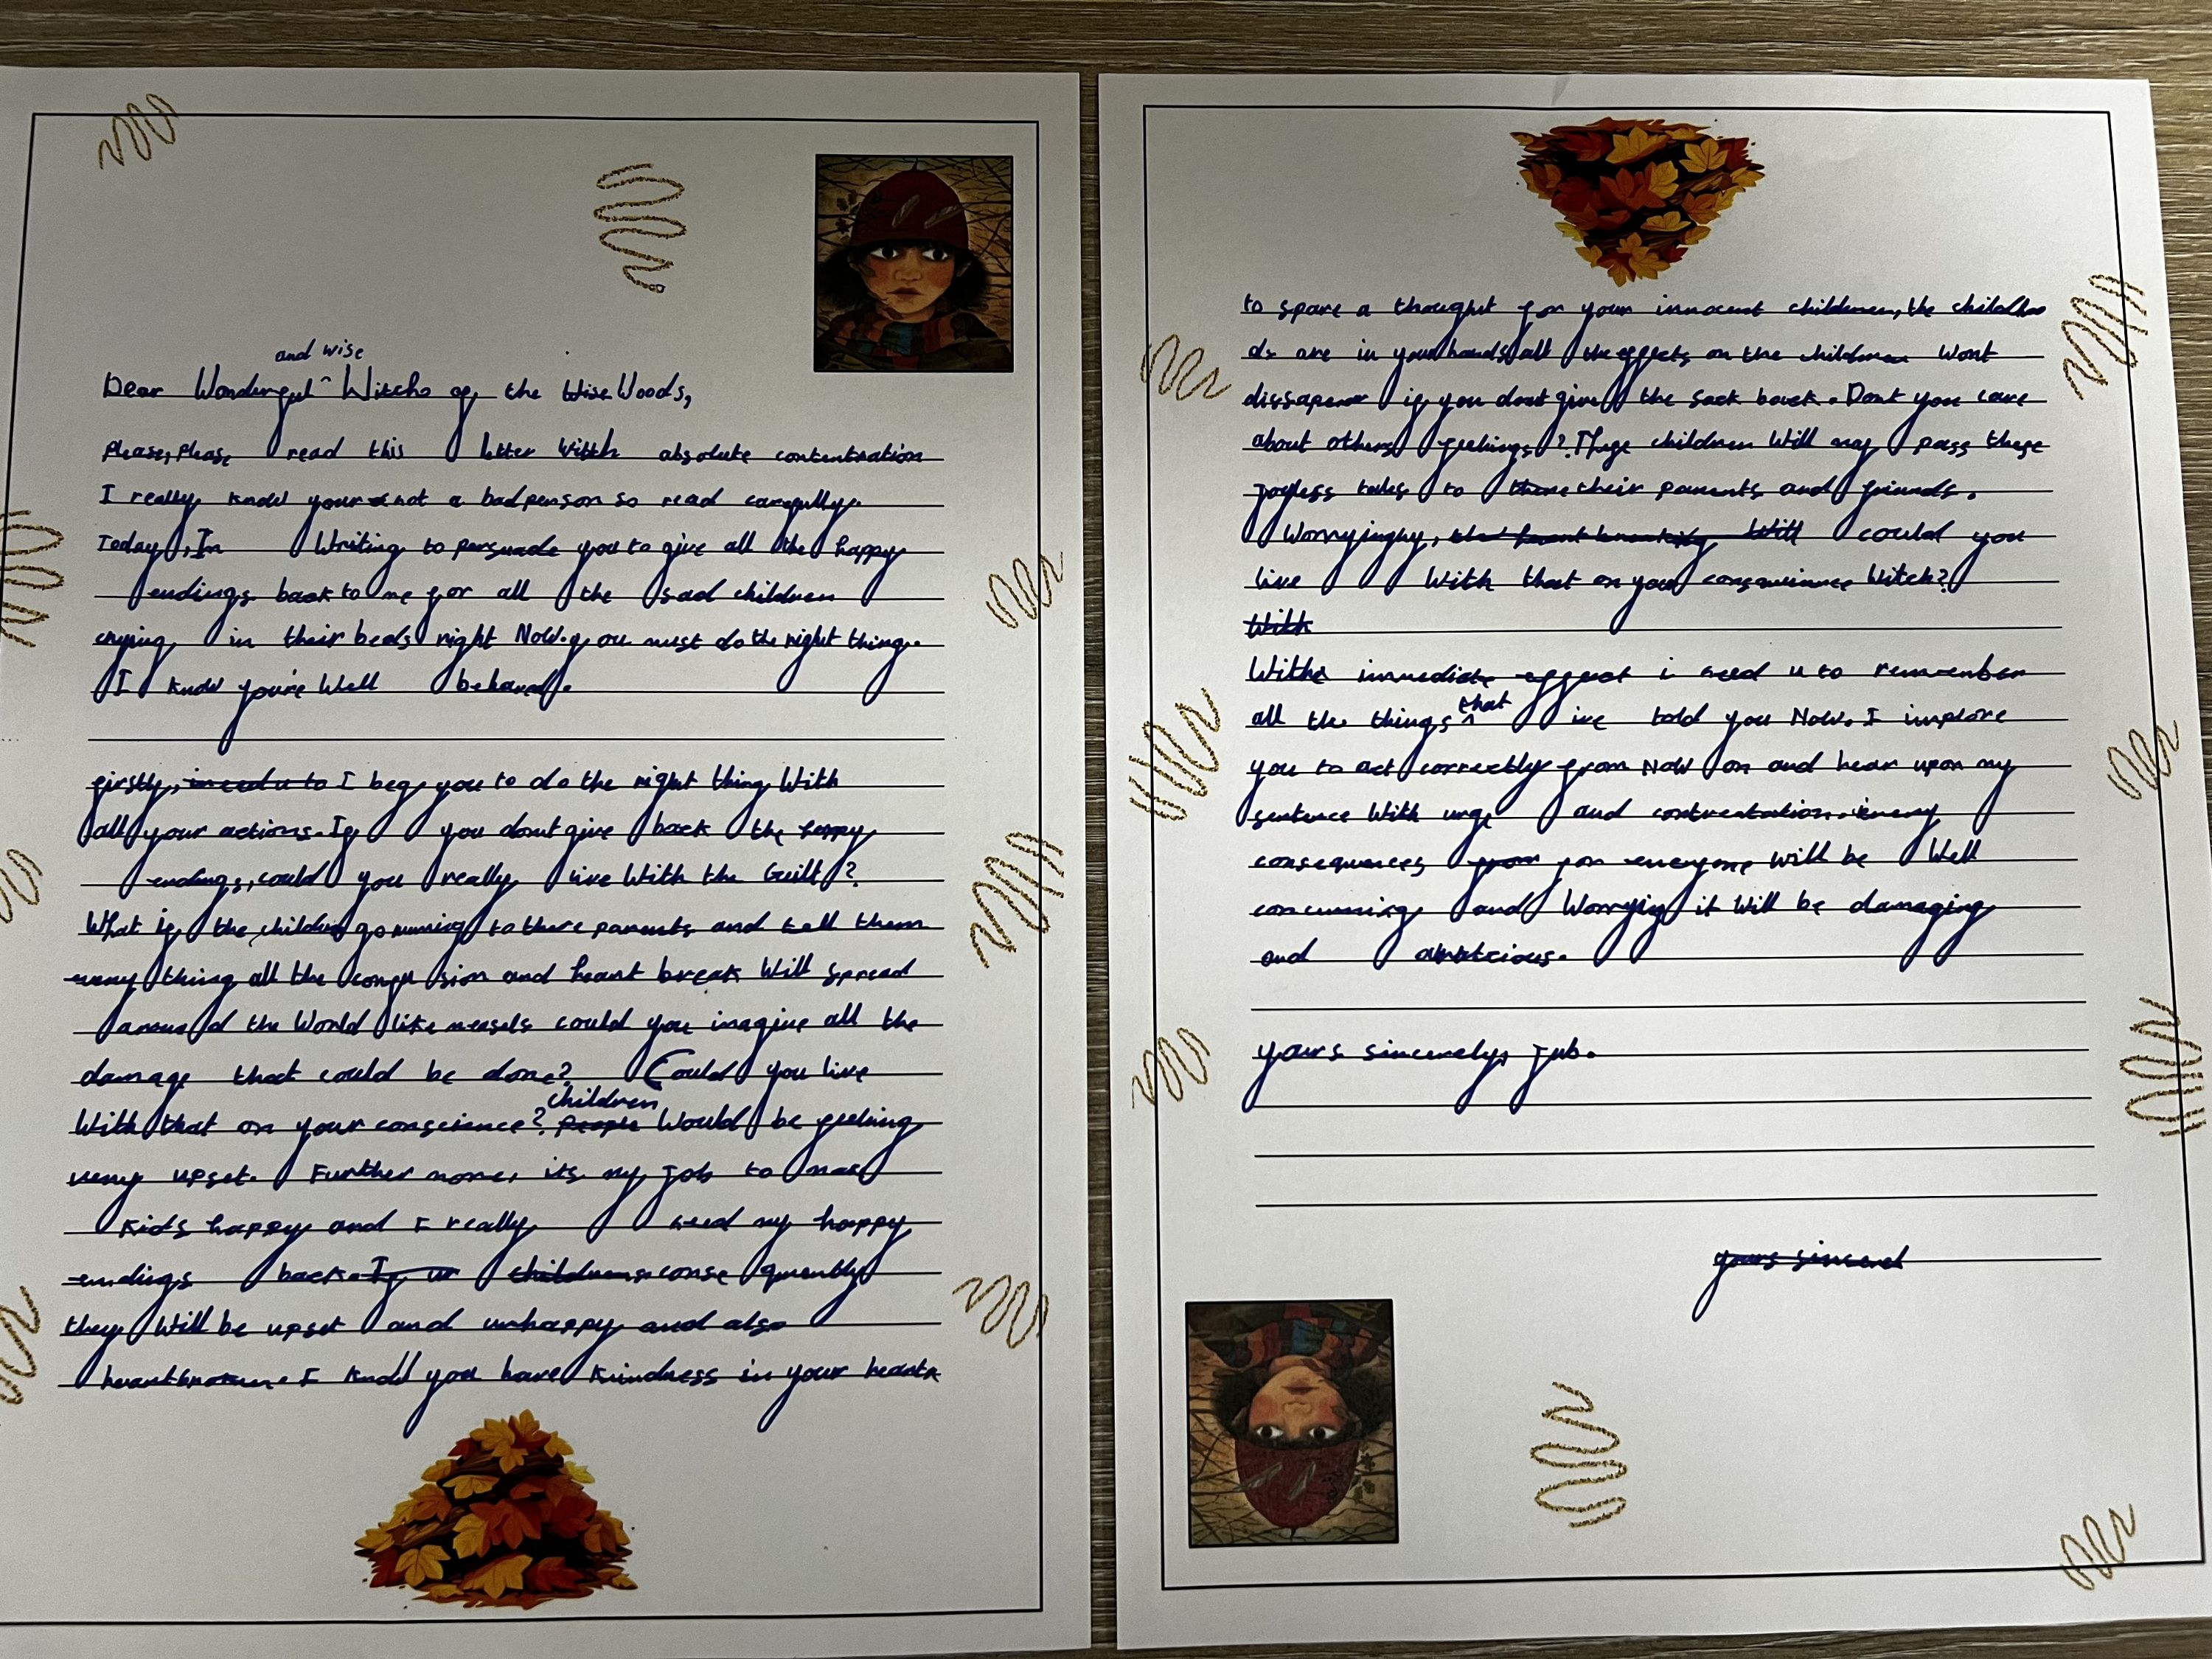 and wise
Dear Wonderful ^ Witch of the Wise Woods,
Please, Please read this letter with absolute contentration
I really know your not a bad person so read carefully.
Today, Im Writing to persuade you to give all the happy
endings back to me for all the sad children
crying in their beds right Now. you must do the right thing.
I know you're Well behaved.
firstly, i need u to I beg you to do the right thing With
all your actions. If you dont give back the happy
endings, could you really live With the Guilt?
What if the children go running to there parents and tell them
every thing all the confu sion and heart break Will spread
around the World like measels could you imagine all the
damage that could be done? Could you live
children
With that on your conscience? people Would be feeling
very upset. Further more, its my Job to make
Kids happy and I really need my happy
endings back. If ur childrens conse quently
they Will be upset and unhappy and also
heartbroken. I know you have kindness in your heart
to spare a thought for your innocent children, the childhoo
ds are in your hands all the effects on the children Wont
dissapear if you dont give the sack back. Dont you care
about others feelings? These children Will may pass these
Joyless tales to there their parents and friends.
Worryingly, the heart breaking Will could you
live With that on your Witch?
With
With immediate effect i need u to remember
that
all the things ^ ive told you Now. I implore
you to act correctly from Now on and hear upon my
sentence With urge and
consequences from for everyone Will be Well
and Worrying it Will be damaging
and
yours sincerely, Jub.
yours sincerel